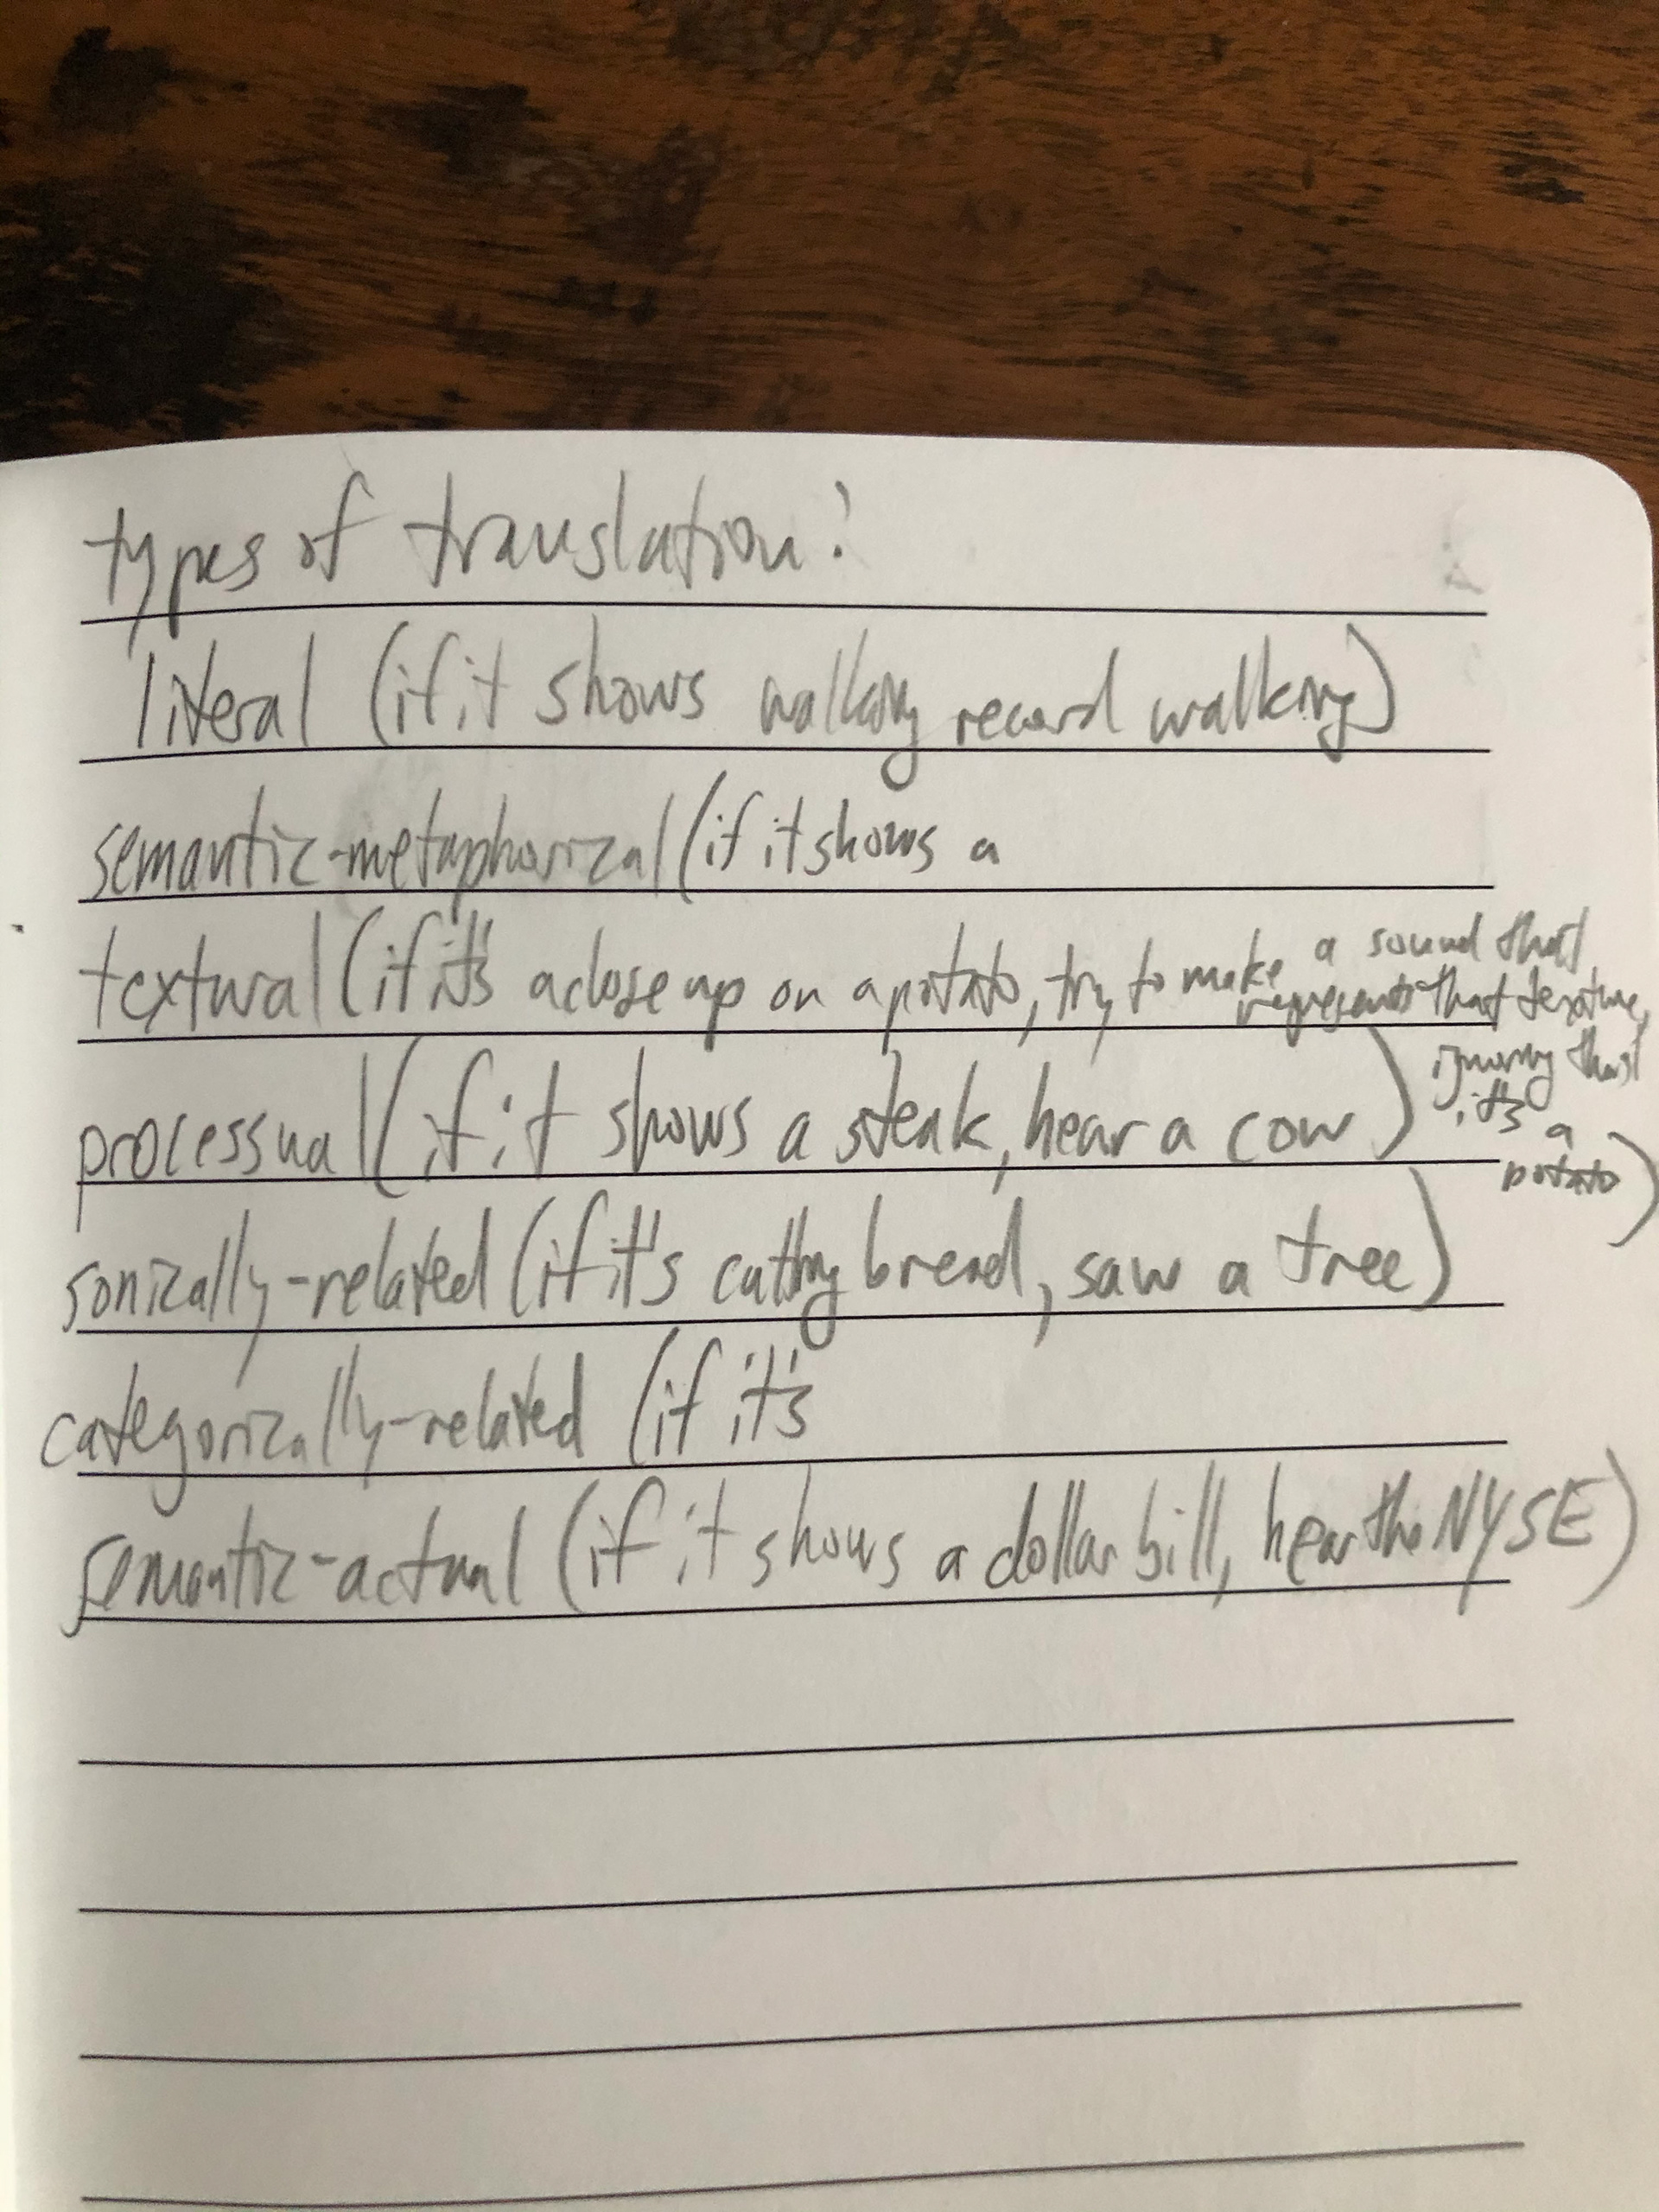 types of translation?
literal (if it shows walking record walking)
semantic-metaphorical (if it shows a
textural (if it's a close up on a potato, try to make a sound that
represents that texture,
ignoring that
it's a
potato)
processual (if it shows a steak, hear a cow)
sonically-related (if it's cutting bread, saw a tree)
categorically-related (if it's
semantic-actual (if it shows a dollar bill, hear the NYSE)